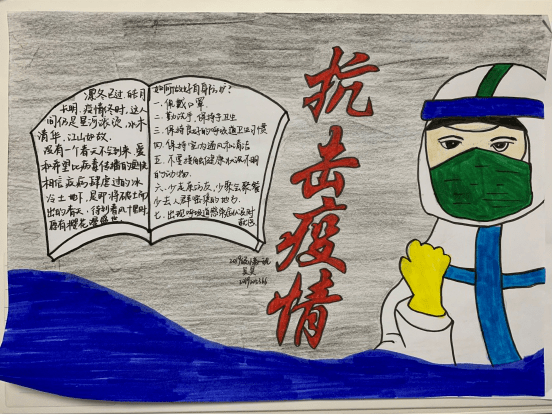 凛冬已过，皓月
长明，疫情尽时，这人
间仍是星河滚烫，水木
清华，江山如故。
没有一个春天不会到来，爱
和希望比病毒传播的更快
相信疫病肆虐过的冰
冷土地下，是即将破土而
出的春天，待到春风十里时
再有樱花
如何做好自身防护？
一、佩戴口罩
二、勤洗手，保持手卫生
三、保持良好的呼吸道卫生习惯
四、保持室内通风和清洁
五、不要接触健康状况不明
的动物
六、少走亲访友，少聚会聚餐
少去人群密集的地方
七、出现呼吸道感染症状及时
就医
抗击疫情